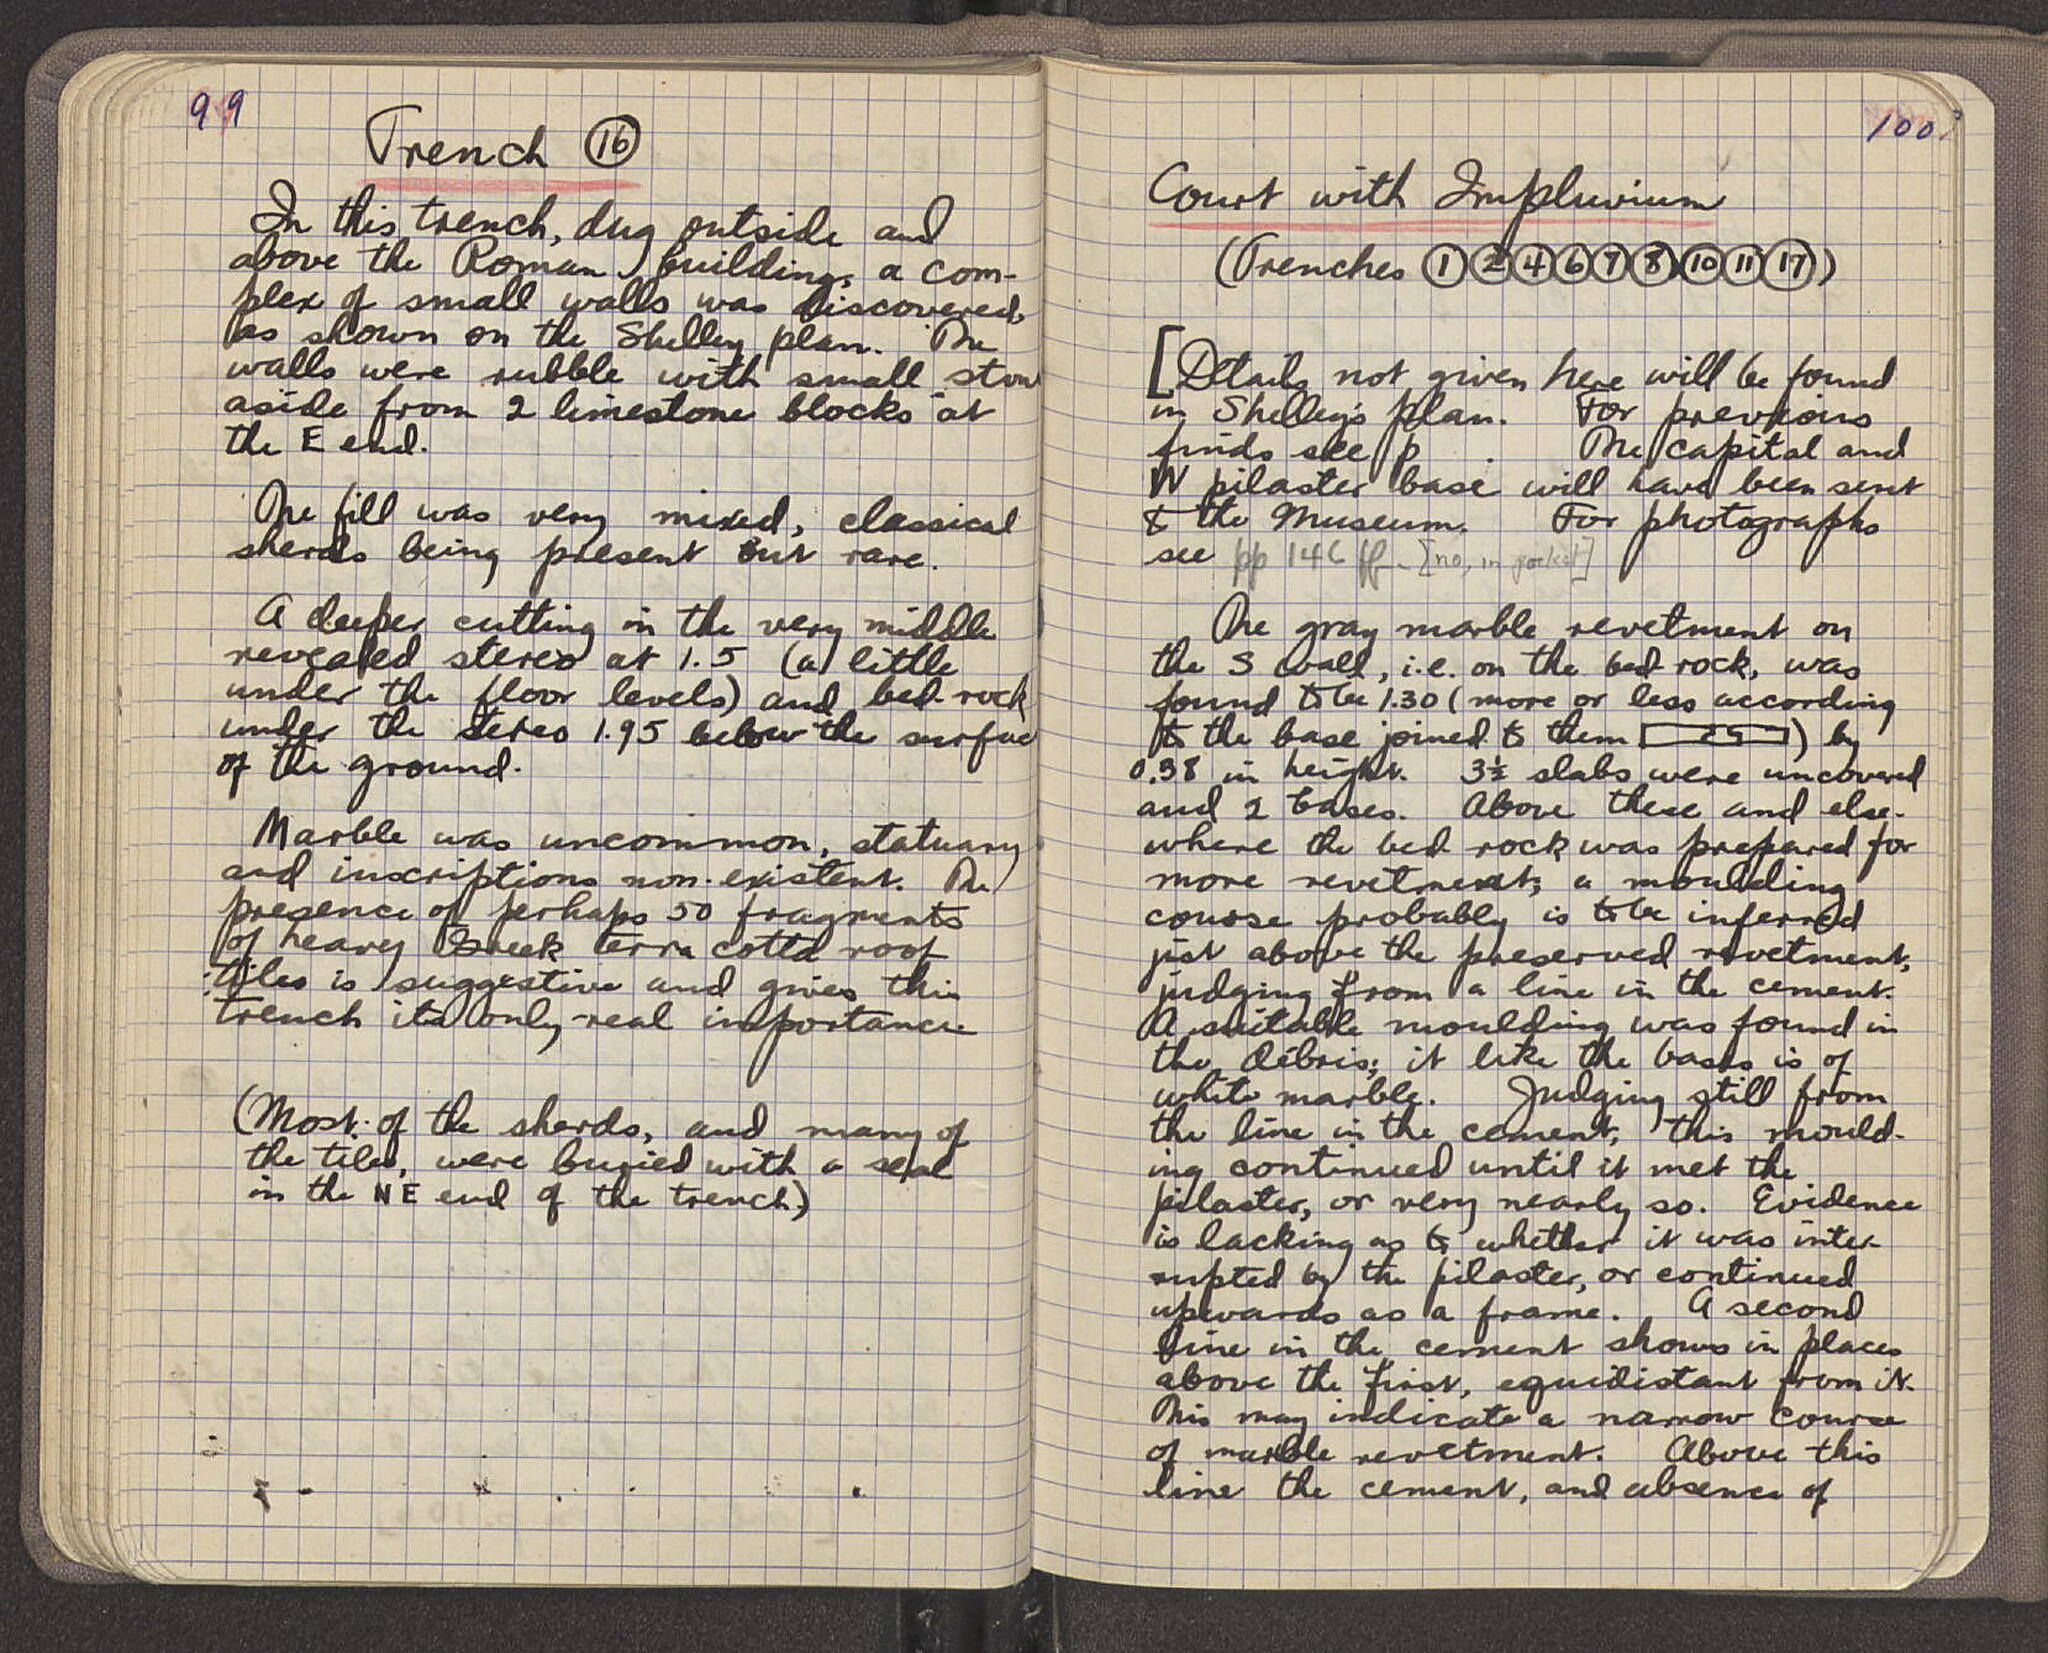 99
Trench 16
In this trench, dug outside and
above the Roman building, a com-
plex of small walls was discovered,
as shown on the Shelley plan. The
walls were rubble with small ston
aside from 2 limestone blocks at
the E end.
The fill was very mixed, classical
sherds being present but rare.
A deeper cutting in the very middle
revealed stereo at 1.5 (a little
under the floor levels) and bed-rock
under the stereo 1.95 below the surface
of the ground.
Marble was uncommon, statuary
and inscriptions non-existent. The
presence of perhaps 50 fragments
of heavy Greek terra cotta roof
tiles is suggestive and gives this
trench its only real importance
(Most of the sherds, and many of
the tiles, were buried with a seal
in the NE end of the trench)
100
Court with Impluvium
(Trenches 1 2 4 6 7 8 10 11 17)
[Details not given here will be found
in Shelley's plan. For previous
finds see p . The capital and
W pilaster base will have been sent
to the Museum. For photographs
see pp 146 ff. [no, in pocket]
The gray marble revetment on
the S wall, i.e. on the bed rock, was
found to be 1.30 (more or less according
to the base joined to them ) by
0.38 in height. 3½ slabs were uncovered
and 2 bases. Above these and else-
where the bed rock was prepared for
more revetment; a moulding
course probably is to be inferred
just above the preserved revetment,
judging from a line in the cement.
A suitable moulding was found in
the débris; it like the bases is of
white marble. Judging still from
the line in the cement, this mould-
ing continued until it met the
pilaster, or very nearly so. Evidence
is lacking as to whether it was inter-
rupted by the pilaster, or continued
upwards as a frame. A second
line in the cement shows in places
above the first, equidistant from it.
This may indicate a narrow course
of marble revetment. Above this
line the cement, and absence of